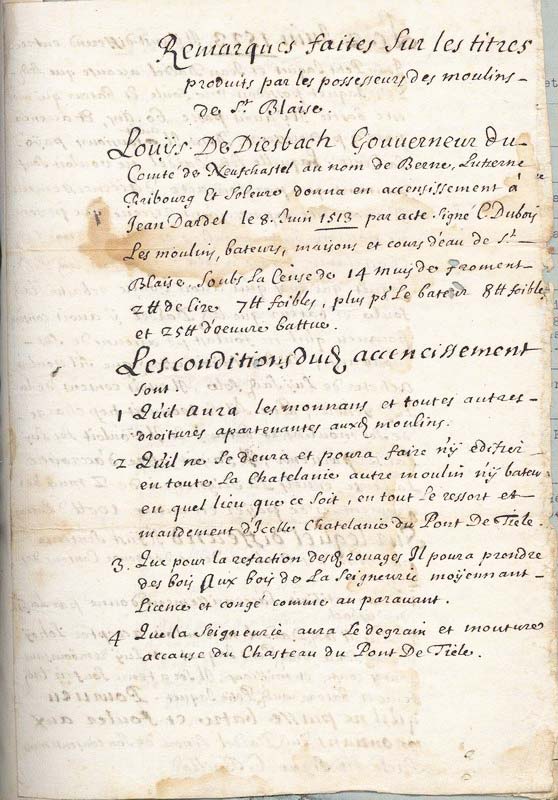 Remarques faites Sur les titres
produits par les possesseurs des moulins
de St Blaise.
Louÿs De Diesbach Gouverneur du
Comté de Neuschastel au nom de Berne, Lutzerne
Fribourg et Soleure, donna en accensissement à
Jean Dardel le 8. Juin 1513 par acte signé C. Dubois
Les moulins, bateurs, maisons et cours d'eau de St
Blaise, soubs La Cense de 14 muis de froment
2 ₶ de Cire 7 ₶ foibles, plus pr Le bateur 8 ₶ foibles
et 25 ₶ d'oeuvre battue.
Les conditions dud accencissement
sont.
1 Qu'il aura les monnans et toutes autres
droitures apartenantes auxd moulins.
2 Qu'il ne se devra et poura faire n'y edifier
en toute La Chatelanie autre moulin n'y bateur
en quel lieu que ce soit, en tout Le ressort et
mandement d'Icelle Chatelanie du Pont De Tiele.
3. Que pour la refaction desd rouages Il poura prendre
des bois Aux bois de La Seigneurie moÿennant
Licence et congé comme au paravant.
4 Que la Seigneurie aura Le degrain et mouture
accause du Chasteau du Pont De Tiele.